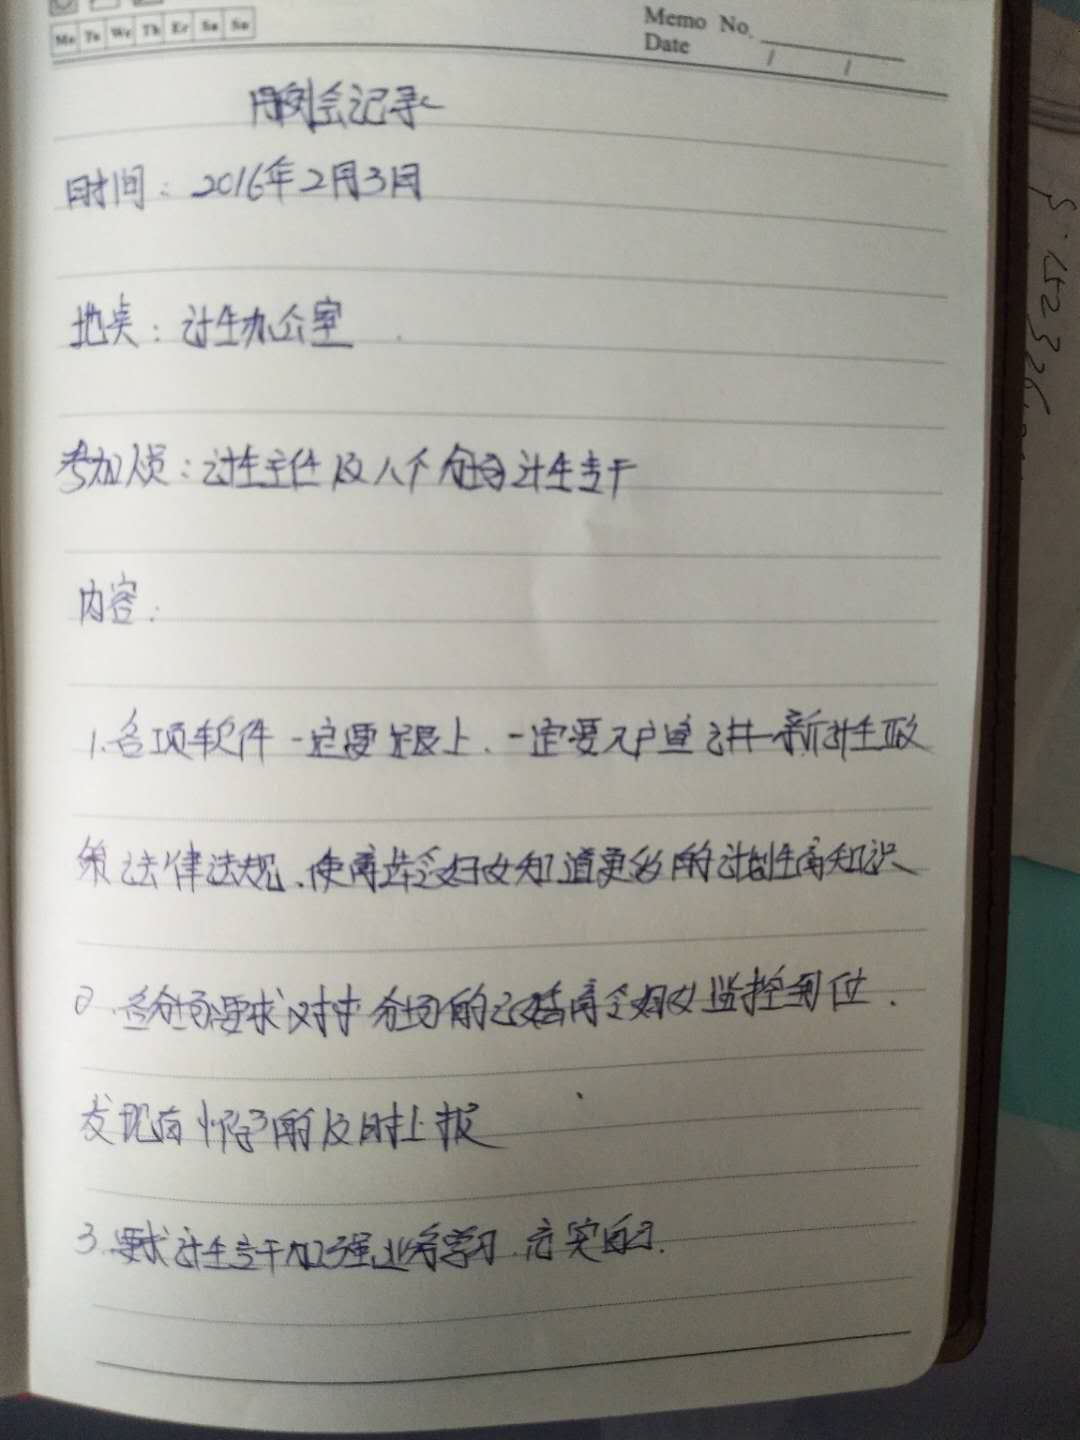 Mo Tu We Th Fr Sa Su
Memo No.
Date / /
月例会记录
时间：2016年2月3日
地点：计生办公室
参加人员：计生主任及八个分场计生专干
内容：
1.各项软件一定要跟上、一定要入户宣讲新计生政
策法律法规、使育龄妇女知道更多的计划生育知识
2.各分场要求对本分场的已婚育龄妇女监控到位.
发现有怀孕的及时上报
3.要求计生专干加强业务学习.充实自己.